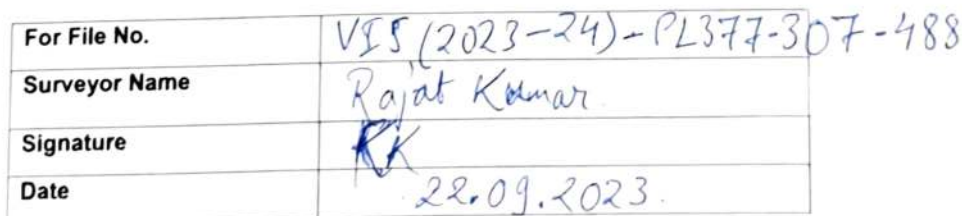 For File No. VIS (2023-24)-PL377-307-488
Surveyor Name Rajat Kumar
Signature RK
Date 22.09.2023.